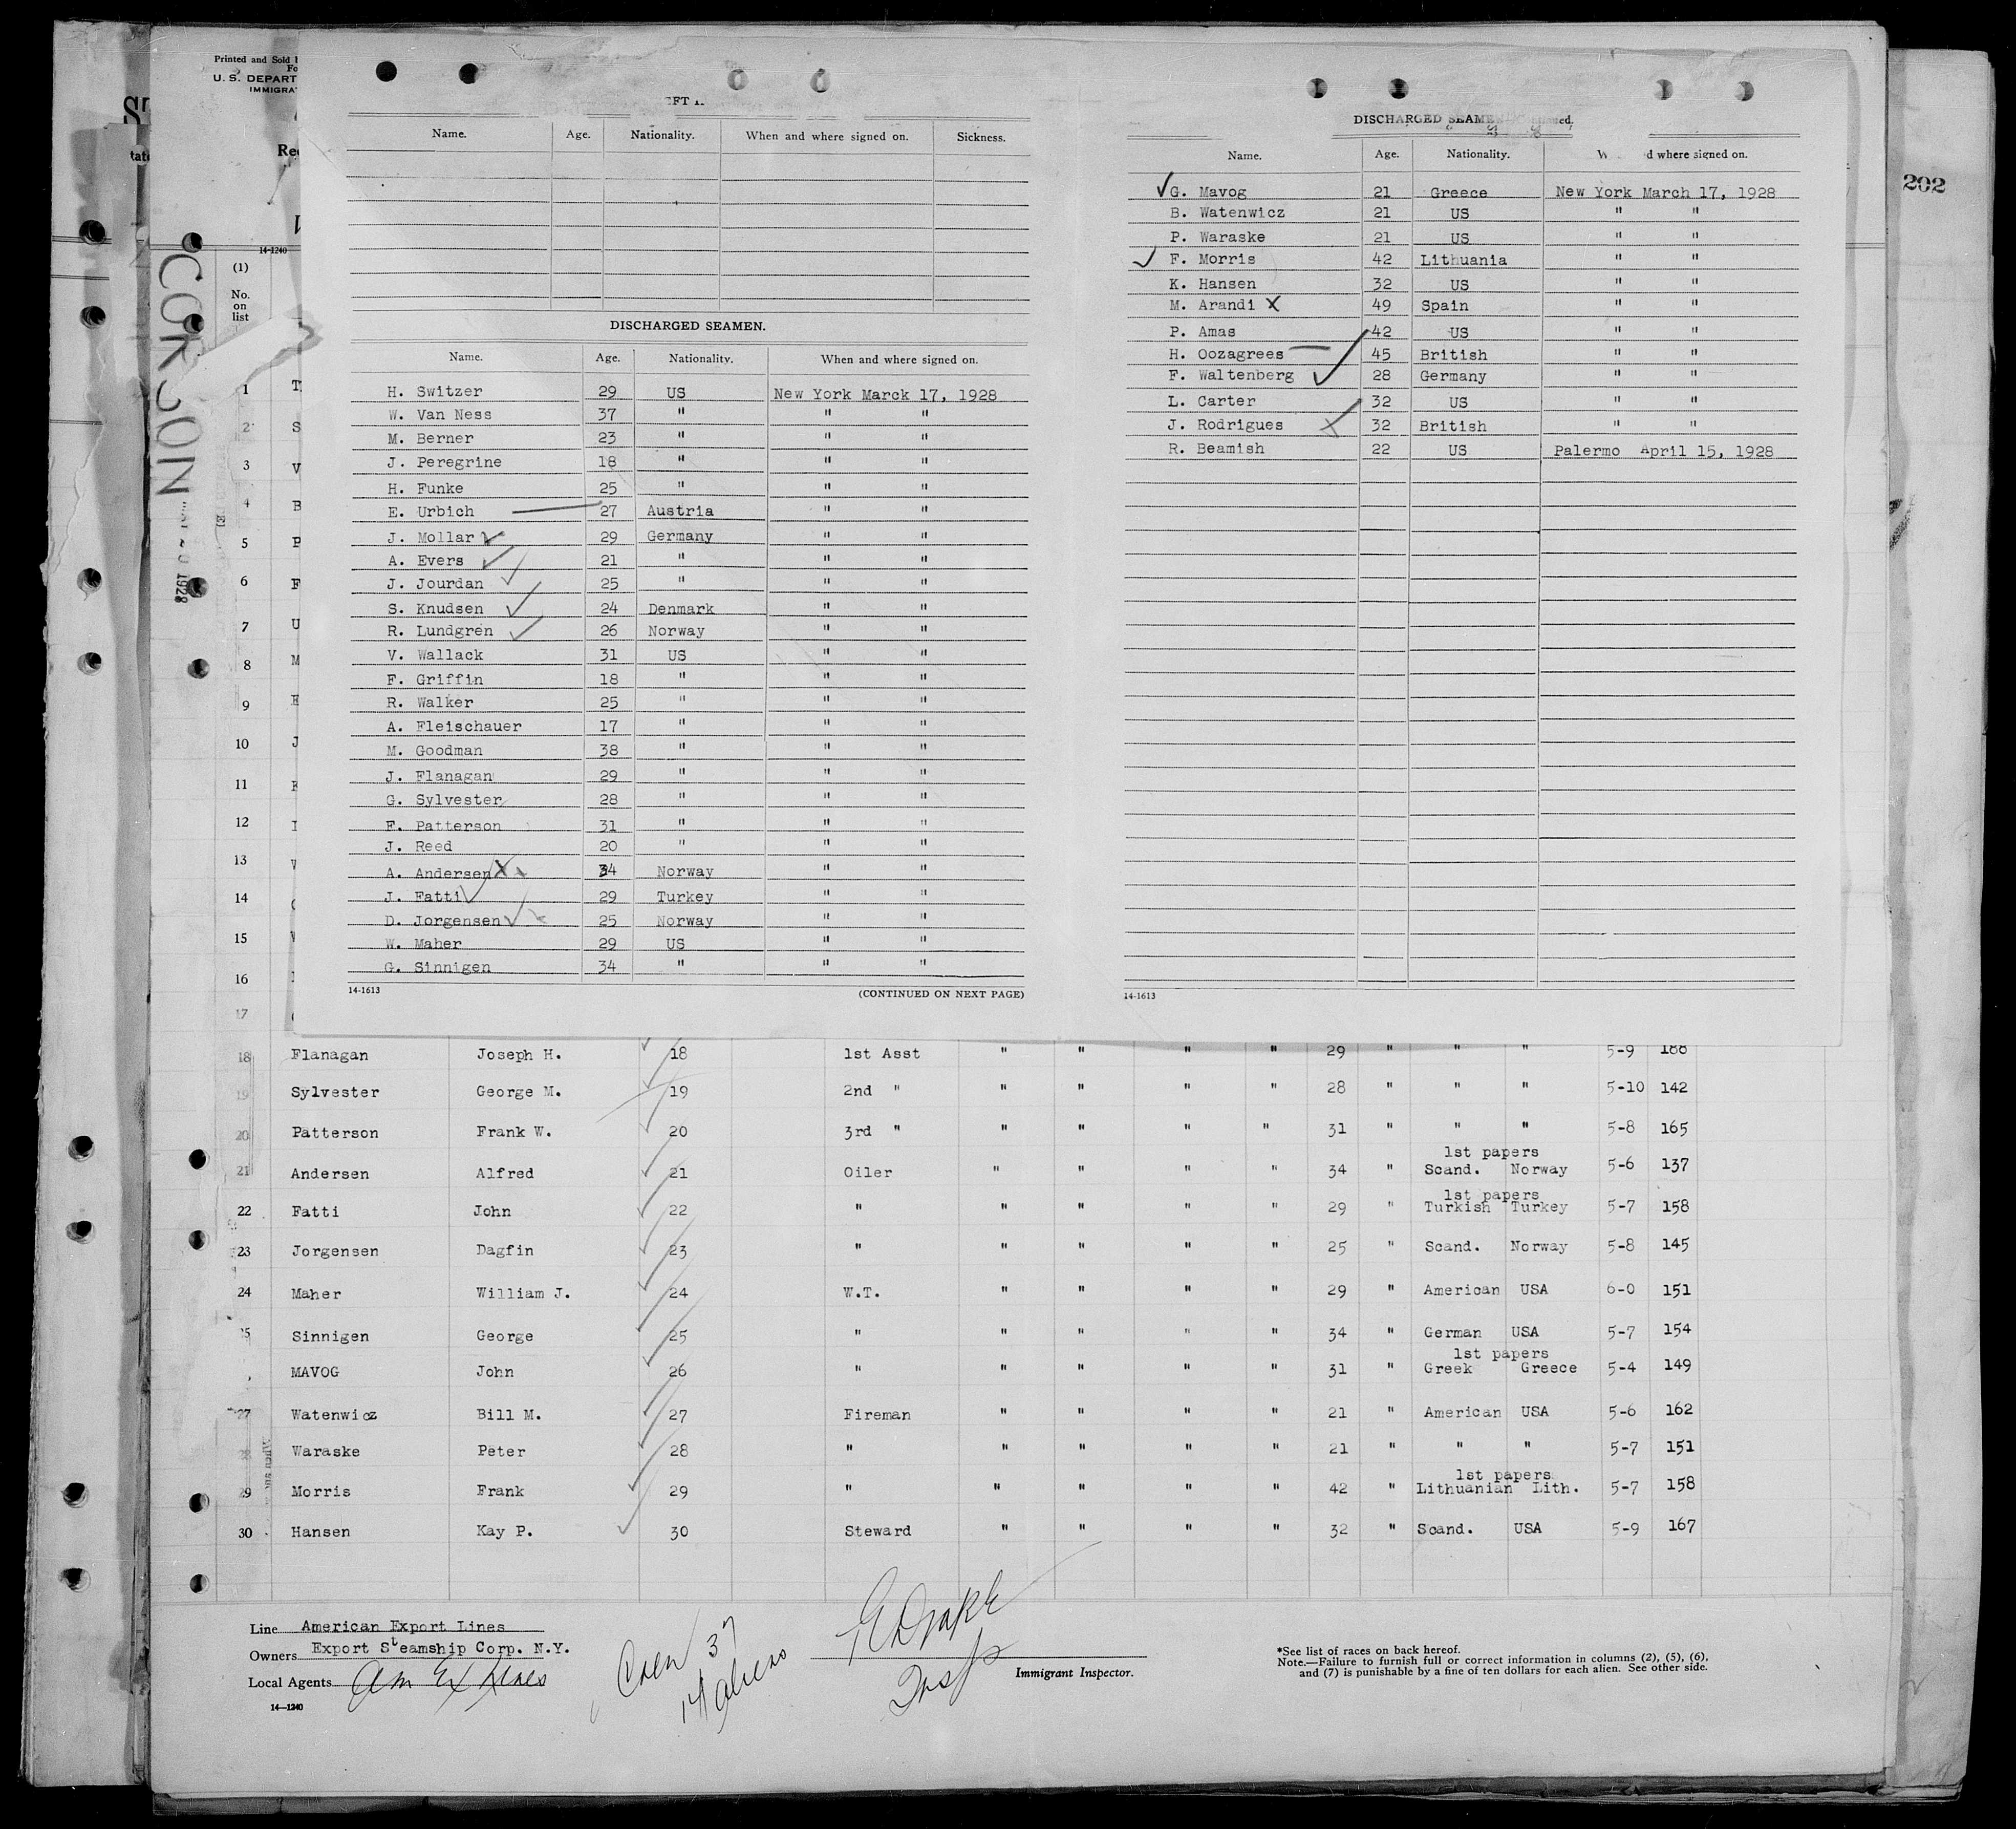 Printed and Sold
U. S. DEPART
IMMIGRA
14-1240
(1)
No.
on
list
202
1928
Name. Age. Nationality. When and where signed on. Sickness.
DISCHARGED SEAMEN.
Name. Age. Nationality. When and where signed on.
H. Switzer 29 US New York Marck 17, 1928
W. Van Ness 37 " " "
M. Berner 23 " " "
J. Peregrine 18 " " "
H. Funke 25 " " "
E. Urbich 27 Austria " "
J. Mollar 29 Germany " "
A. Evers 21 " " "
J. Jourdan 25 " " "
S. Knudsen 24 Denmark " "
R. Lundgren 26 Norway " "
V. Wallack 31 US " "
F. Griffin 18 " " "
R. Walker 25 " " "
A. Fleischauer 17 " " "
M. Goodman 38 " " "
J. Flanagan 29 " " "
G. Sylvester 28 " " "
F. Patterson 31 " " "
J. Reed 20 " " "
A. Andersen 34 Norway " "
J. Fatti 29 Turkey " "
D. Jorgensen 25 Norway " "
W. Maher 29 US " "
G. Sinnigen 34 " " "
14-1613 (CONTINUED ON NEXT PAGE)
DISCHARGED SEAMEN
Name. Age. Nationality. where signed on.
G. Mavog 21 Greece New York March 17, 1928
B. Watenwicz 21 US " "
P. Waraske 21 US " "
F. Morris 42 Lithuania " "
K. Hansen 32 US " "
M. Arandi X 49 Spain " "
P. Amas 42 US " "
H. Oozagrees 45 British " "
F. Waltenberg 28 Germany " "
L. Carter 32 US " "
J. Rodrigues 32 British " "
R. Beamish 22 US Palermo April 15, 1928
14-1613
1
2
3
4
5
6
7
8
9
10
11
12
13
14
15
16
17
18 Flanagan Joseph H. 18 1st Asst " " " " 29 " " " 5-9 188
19 Sylvester George M. 19 2nd " " " " " 28 " " " 5-10 142
20 Patterson Frank W. 20 3rd " " " " " 31 " " " 5-8 165
1st papers
21 Andersen Alfred 21 Oiler " " " " 34 " Scand. Norway 5-6 137
1st papers
22 Fatti John 22 " " " " " 29 " Turkish Turkey 5-7 158
23 Jorgensen Dagfin 23 " " " " " 25 " Scand. Norway 5-8 145
24 Maher William J. 24 W.T. " " " " 29 " American USA 6-0 151
Sinnigen George 25 " " " " " 34 " German USA 5-7 154
1st papers
MAVOG John 26 " " " " " 31 " Greek Greece 5-4 149
27 Watenwicz Bill M. 27 Fireman " " " " 21 " American USA 5-6 162
28 Waraske Peter 28 " " " " " 21 " " " 5-7 151
1st papers
29 Morris Frank 29 " " " " " 42 " Lithuanian Lith. 5-7 158
30 Hansen Kay P. 30 Steward " " " " 32 " Scand. USA 5-9 167
Line American Export Lines
Owners Export Steamship Corp. N.Y.
Local Agents Am Ex Lines
14-1240
Crew 37
14 aliens
Insp
Immigrant Inspector.
*See list of races on back hereof.
Note.—Failure to furnish full or correct information in columns (2), (5), (6),
and (7) is punishable by a fine of ten dollars for each alien. See other side.